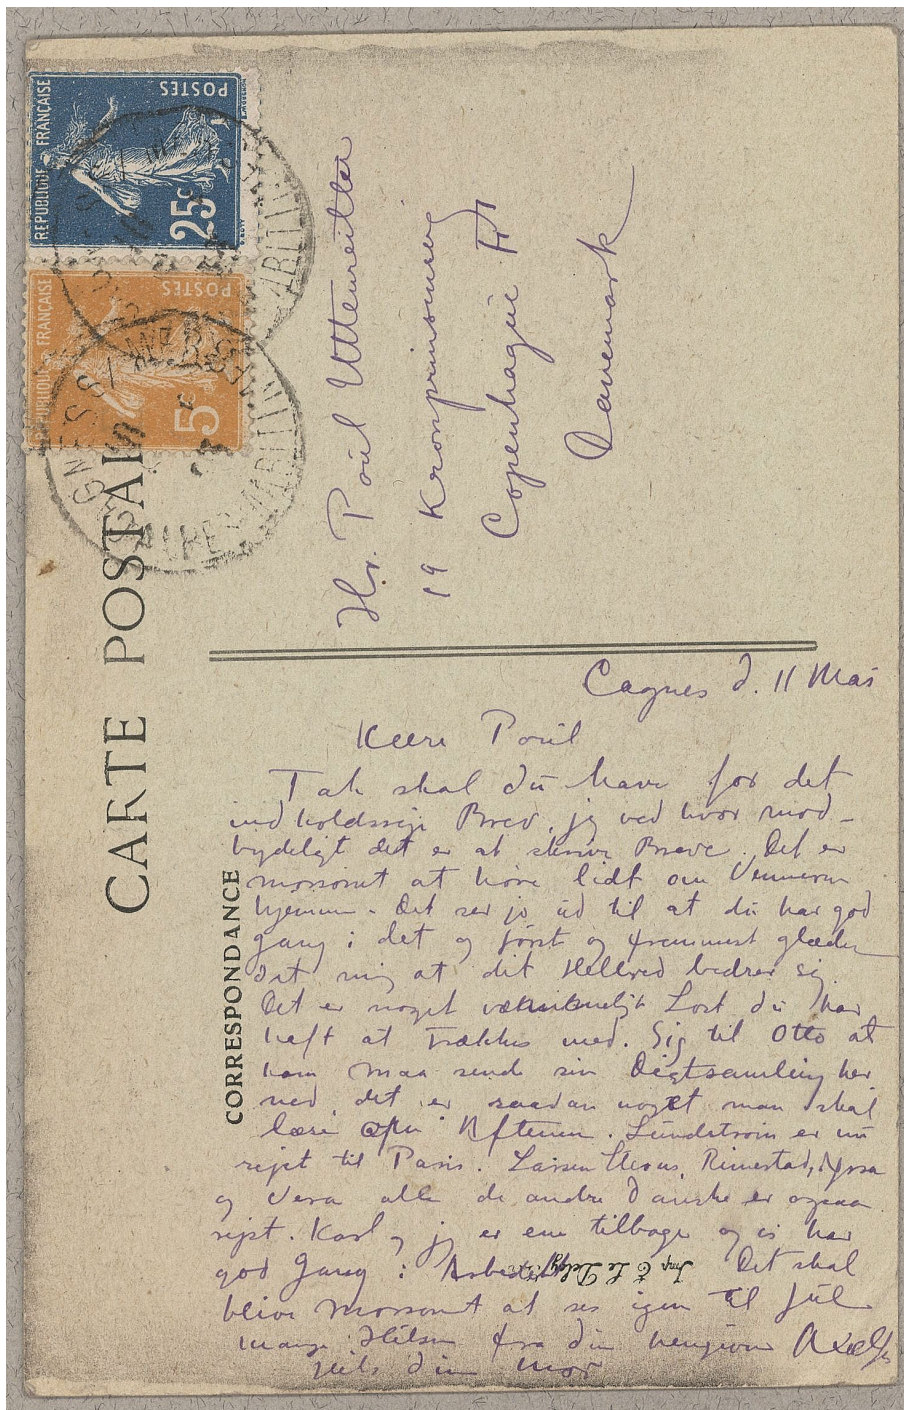 REPUBLIQUE FRANÇAISE
POSTES
25c
REPUBLIQUE FRANÇAISE
POSTES
5c
CAGNES S/ MER
ALPES MARITIMES
CARTE POSTALE
CORRESPONDANCE
Hr. Poul Uttenreitter
19 Kronprinsensvej
Copenhague F
Danemark
Cagnes d. 11 Mai
Kære Poul
Tak skal du have for det
indholdsrige Brev, jeg ved hvor mod-
bydeligt det er at skrive Breve. Det er
morsomt at høre lidt om Vennerne
hjemme. Det ser jo ud til at du har god
gang i det og først og fremmest glæder
det mig at dit Helbred bedrer sig.
Det er noget Lort du har
haft at trækkes med. Sig til Otto at
han maa sende sin Digtsamling her
ned, det er saadan noget man skal
læse om Aftenen. Lundstrøm er nu
rejst til Paris. Larsen Stevns, Rimestad,
og Vera alle de andre Danske er ogsaa
rejst. Karl og jeg er ene tilbage og vi har
god Gang i Arbejdet. Det skal
blive morsomt at ses igen til Jul
mange Hilsner fra din hengivne Axel
Hils din Mor
Imp. E. Le Deley